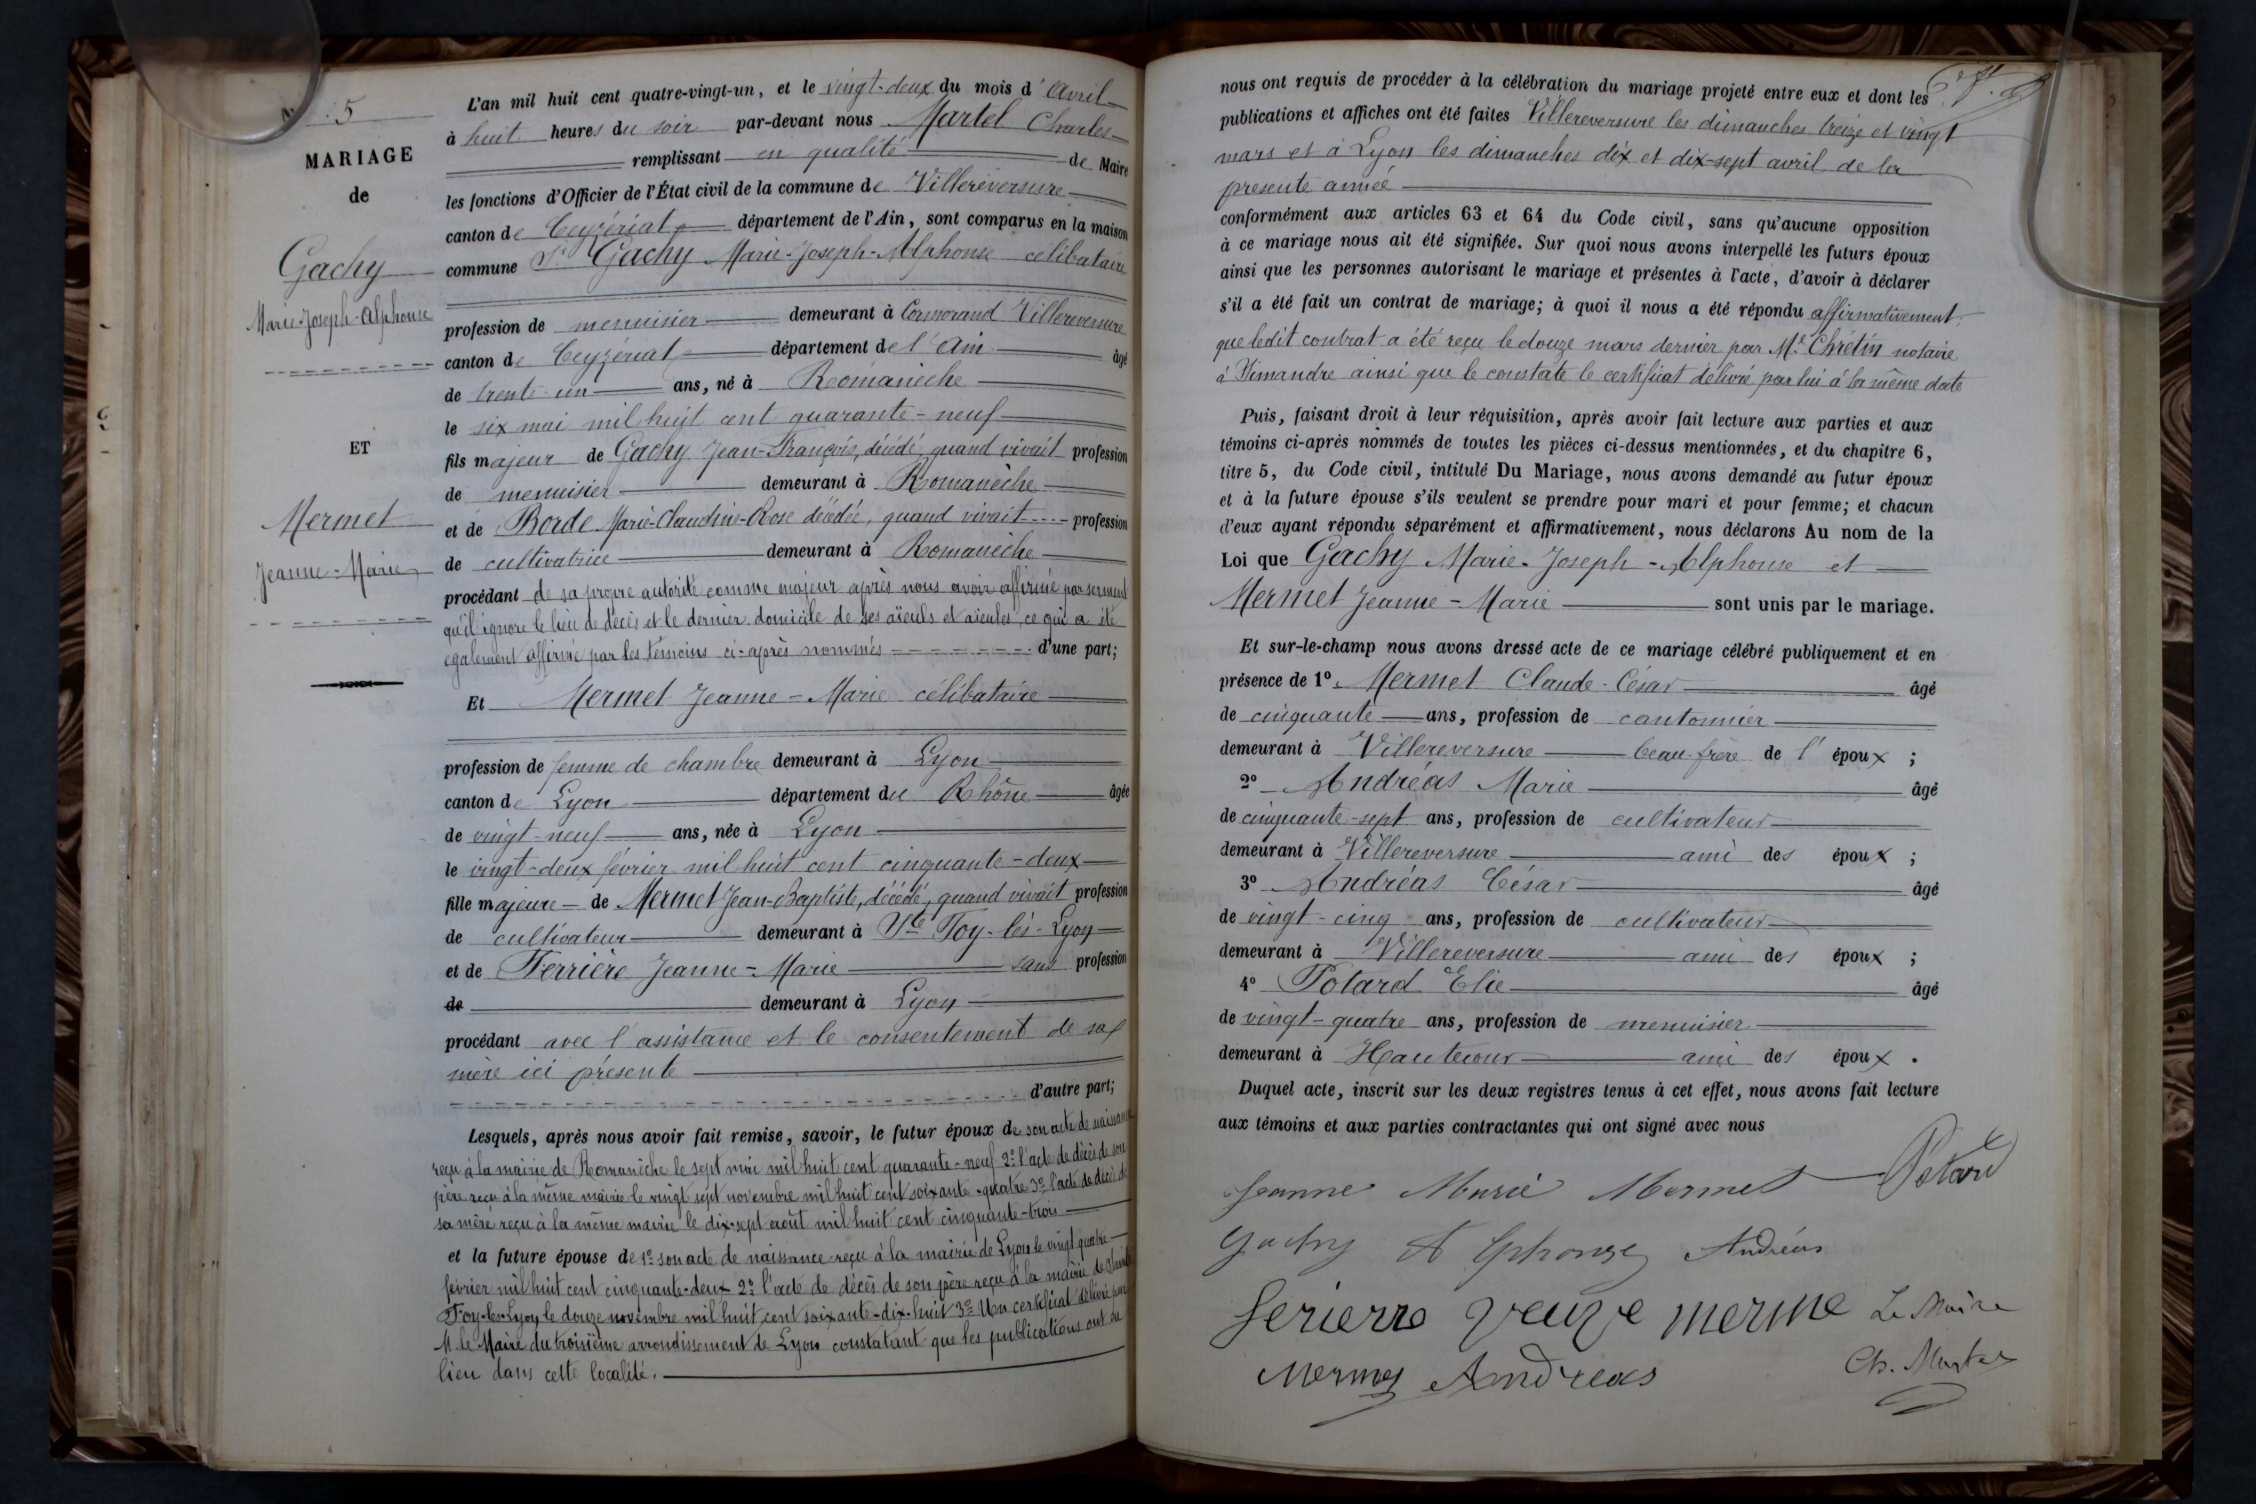 N° 5
MARIAGE
de
Gachy
Marie-Joseph-Alphonse
ET
Mermet
Jeanne-Marie
L'an mil huit cent quatre-vingt-un, et le vingt-deux du mois d'Avril
à huit heures du soir par-devant nous Martel Charles
remplissant en qualité de Maire
les fonctions d'Officier de l'État civil de la commune de Villereversure
canton de Ceyzériat département de l'Ain, sont comparus en la maison
commune Sr Gachy Marie-Joseph-Alphonse célibataire
profession de menuisier demeurant à Cormorand Villereversure
canton de Ceyzériat département de l'Ain âgé
de trente-un ans, né à Romanèche
le six mai mil huit cent quarante-neuf
fils majeur de Gachy Jean-François, décédé, quand vivait profession
de menuisier demeurant à Romanèche
et de Borde Marie-Claudine-Rose décédée, quand vivait profession
de cultivatrice demeurant à Romanèche
procédant de sa propre autorité comme majeur après nous avoir affirmé par serment
qu'il ignore le lieu de décès et le dernier domicile de ses aïeuls et aïeules ce qui a été
egalement affirmé par les témoins ci-après nommés d'une part;
Et Mermet Jeanne-Marie célibataire
profession de femme de chambre demeurant à Lyon
canton de Lyon département du Rhône âgée
de vingt-neuf ans, née à Lyon
le vingt-deux février mil huit cent cinquante-deux
fille majeure de Mermet Jean-Baptiste, décédé, quand vivait profession
de cultivateur demeurant à Ste Foy-lès-Lyon
et de Ferrière Jeanne-Marie sans profession
de demeurant à Lyon
procédant avec l'assistance et le consentement de sa
mère ici présente
d'autre part;
Lesquels, après nous avoir fait remise, savoir, le futur époux de son acte de naissance
reçu à la mairie de Romanèche le sept mai mil huit cent quarante-neuf 2° l'acte de décès de son
père reçu à la même mairie le vingt sept novembre mil huit cent soixante-quatre 3° l'acte de décès de
sa mère reçu à la même mairie le dix-sept août mil huit cent cinquante-trois
et la future épouse de 1° son acte de naissance reçu à la mairie de Lyon le vingt quatre
février mil huit cent cinquante-deux 2° l'acte de décès de son père reçu à la mairie de Sainte
Foy-les-Lyon le douze novembre mil huit cent soixante-dix-huit 3° Un certificat délivré par
M. le Maire du troisième arrondissement de Lyon constatant que les publications ont eu
lieu dans cette localité.
nous ont requis de procéder à la célébration du mariage projeté entre eux et dont les
publications et affiches ont été faites Villereversure les dimanches treize et vingt
mars et à Lyon les dimanches dix et dix-sept avril de la
presente année
conformément aux articles 63 et 64 du Code civil, sans qu'aucune opposition
à ce mariage nous ait été signifiée. Sur quoi nous avons interpellé les futurs époux
ainsi que les personnes autorisant le mariage et présentes à l'acte, d'avoir à déclarer
s'il a été fait un contrat de mariage; à quoi il nous a été répondu affirmativement,
que ledit contrat a été reçu le douze mars dernier par Me Chrétin notaire
à Simandre ainsi que le constate le certificat délivré par lui à la même date
Puis, faisant droit à leur réquisition, après avoir fait lecture aux parties et aux
témoins ci-après nommés de toutes les pièces ci-dessus mentionnées, et du chapitre 6,
titre 5, du Code civil, intitulé Du Mariage, nous avons demandé au futur époux
et à la future épouse s'ils veulent se prendre pour mari et pour femme; et chacun
d'eux ayant répondu séparément et affirmativement, nous déclarons Au nom de la
Loi que Gachy Marie-Joseph-Alphonse et
Mermet Jeanne-Marie sont unis par le mariage.
Et sur-le-champ nous avons dressé acte de ce mariage célébré publiquement et en
présence de 1° Mermet Claude-César âgé
de cinquante ans, profession de cantonnier
demeurant à Villereversure beau-frère de l'époux ;
2° Andréas Marie âgé
de cinquante-sept ans, profession de cultivateur
demeurant à Villereversure ami des époux ;
3° Andréas César âgé
de vingt-cinq ans, profession de cultivateur
demeurant à Villereversure ami des époux ;
4° Potard Elie âgé
de vingt-quatre ans, profession de menuisier
demeurant à Hautecour ami des époux .
Duquel acte, inscrit sur les deux registres tenus à cet effet, nous avons fait lecture
aux témoins et aux parties contractantes qui ont signé avec nous
Jeanne Marie Mermet Potard
Gachy Alphonse Andréas
ferierre veuve merme Le Maire
Mermet Andréas Ch. Martel